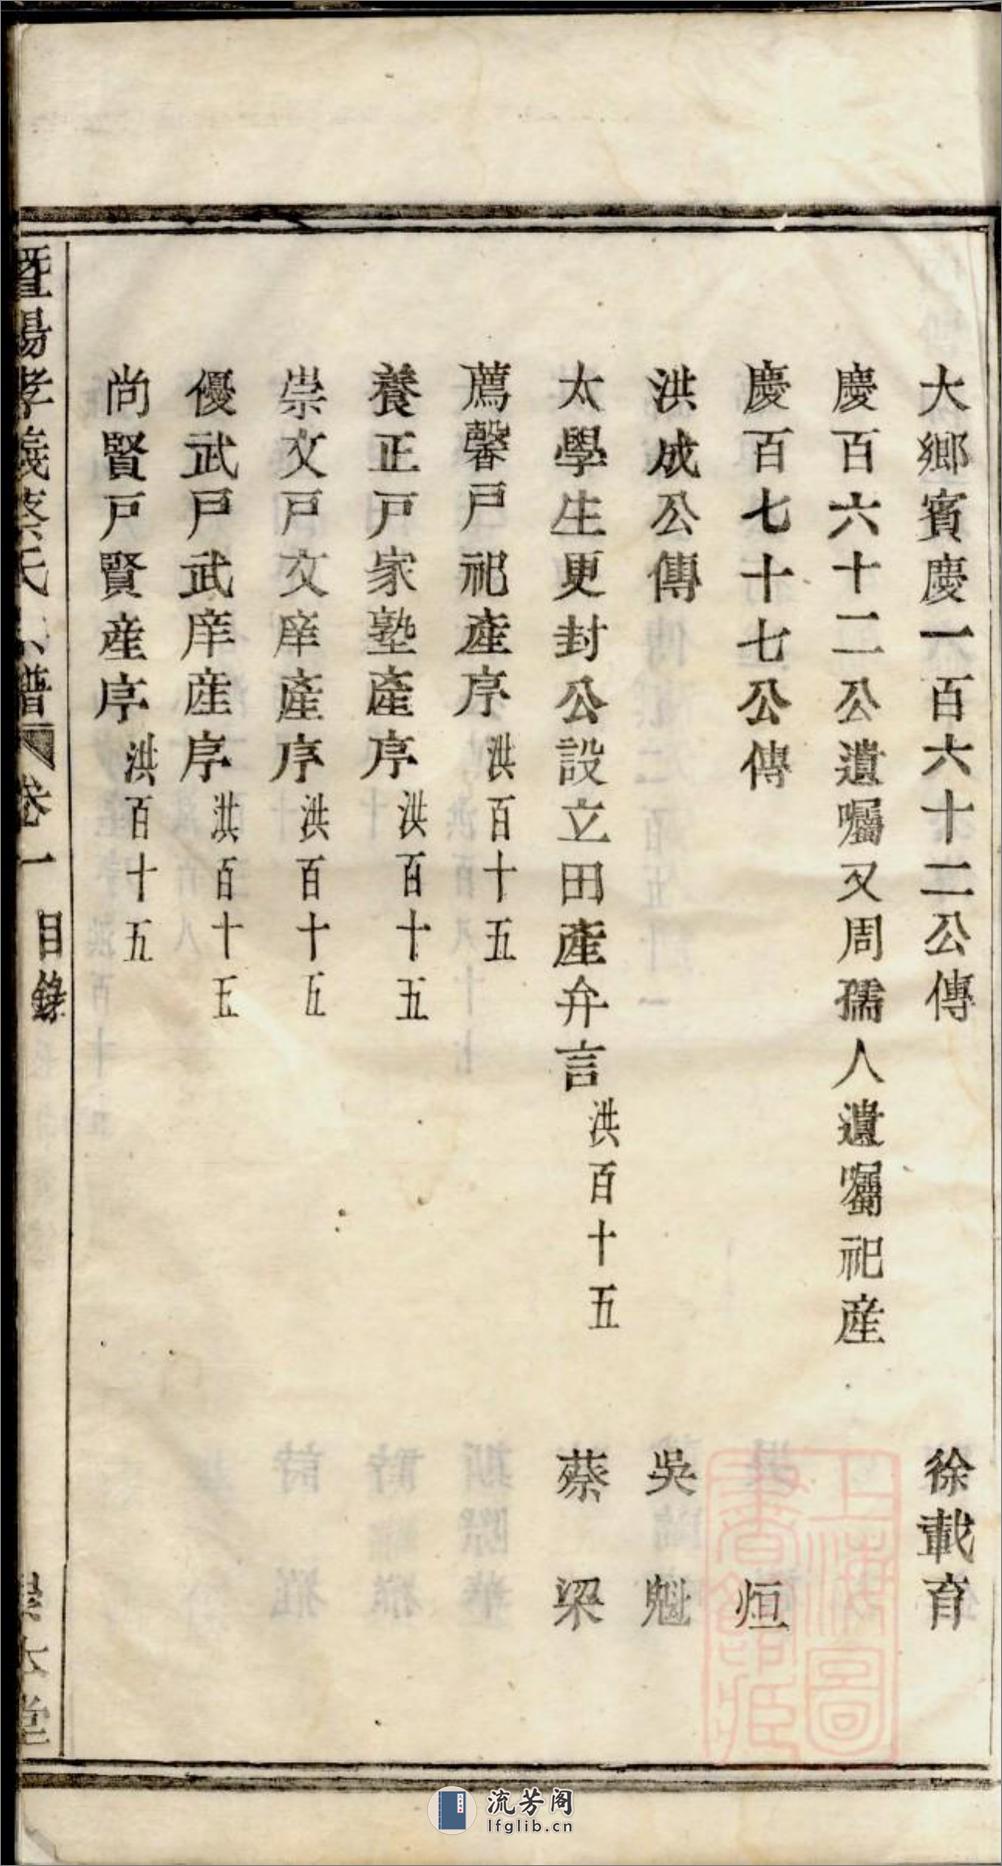 大鄉賓慶一百六十二公傳 徐載育
慶百六十二公遺囑又周孺人遺囑祀産
慶百七十七公傳 恒
洪成公傳 吳魁
太學生更封公設立田產弁言 洪百十五 蔡梁
薦馨戸祀產序 洪百十五
養正戸家塾產序 洪百十五
崇文戸文庠產序 洪百十五
優武戸武庠産序 洪百十五
尚賢戸賢産序 洪百十五
暨陽孝義蔡氏宗譜 卷一 目錄 堂
上海圖書館藏
流芳阁
lfglib.cn